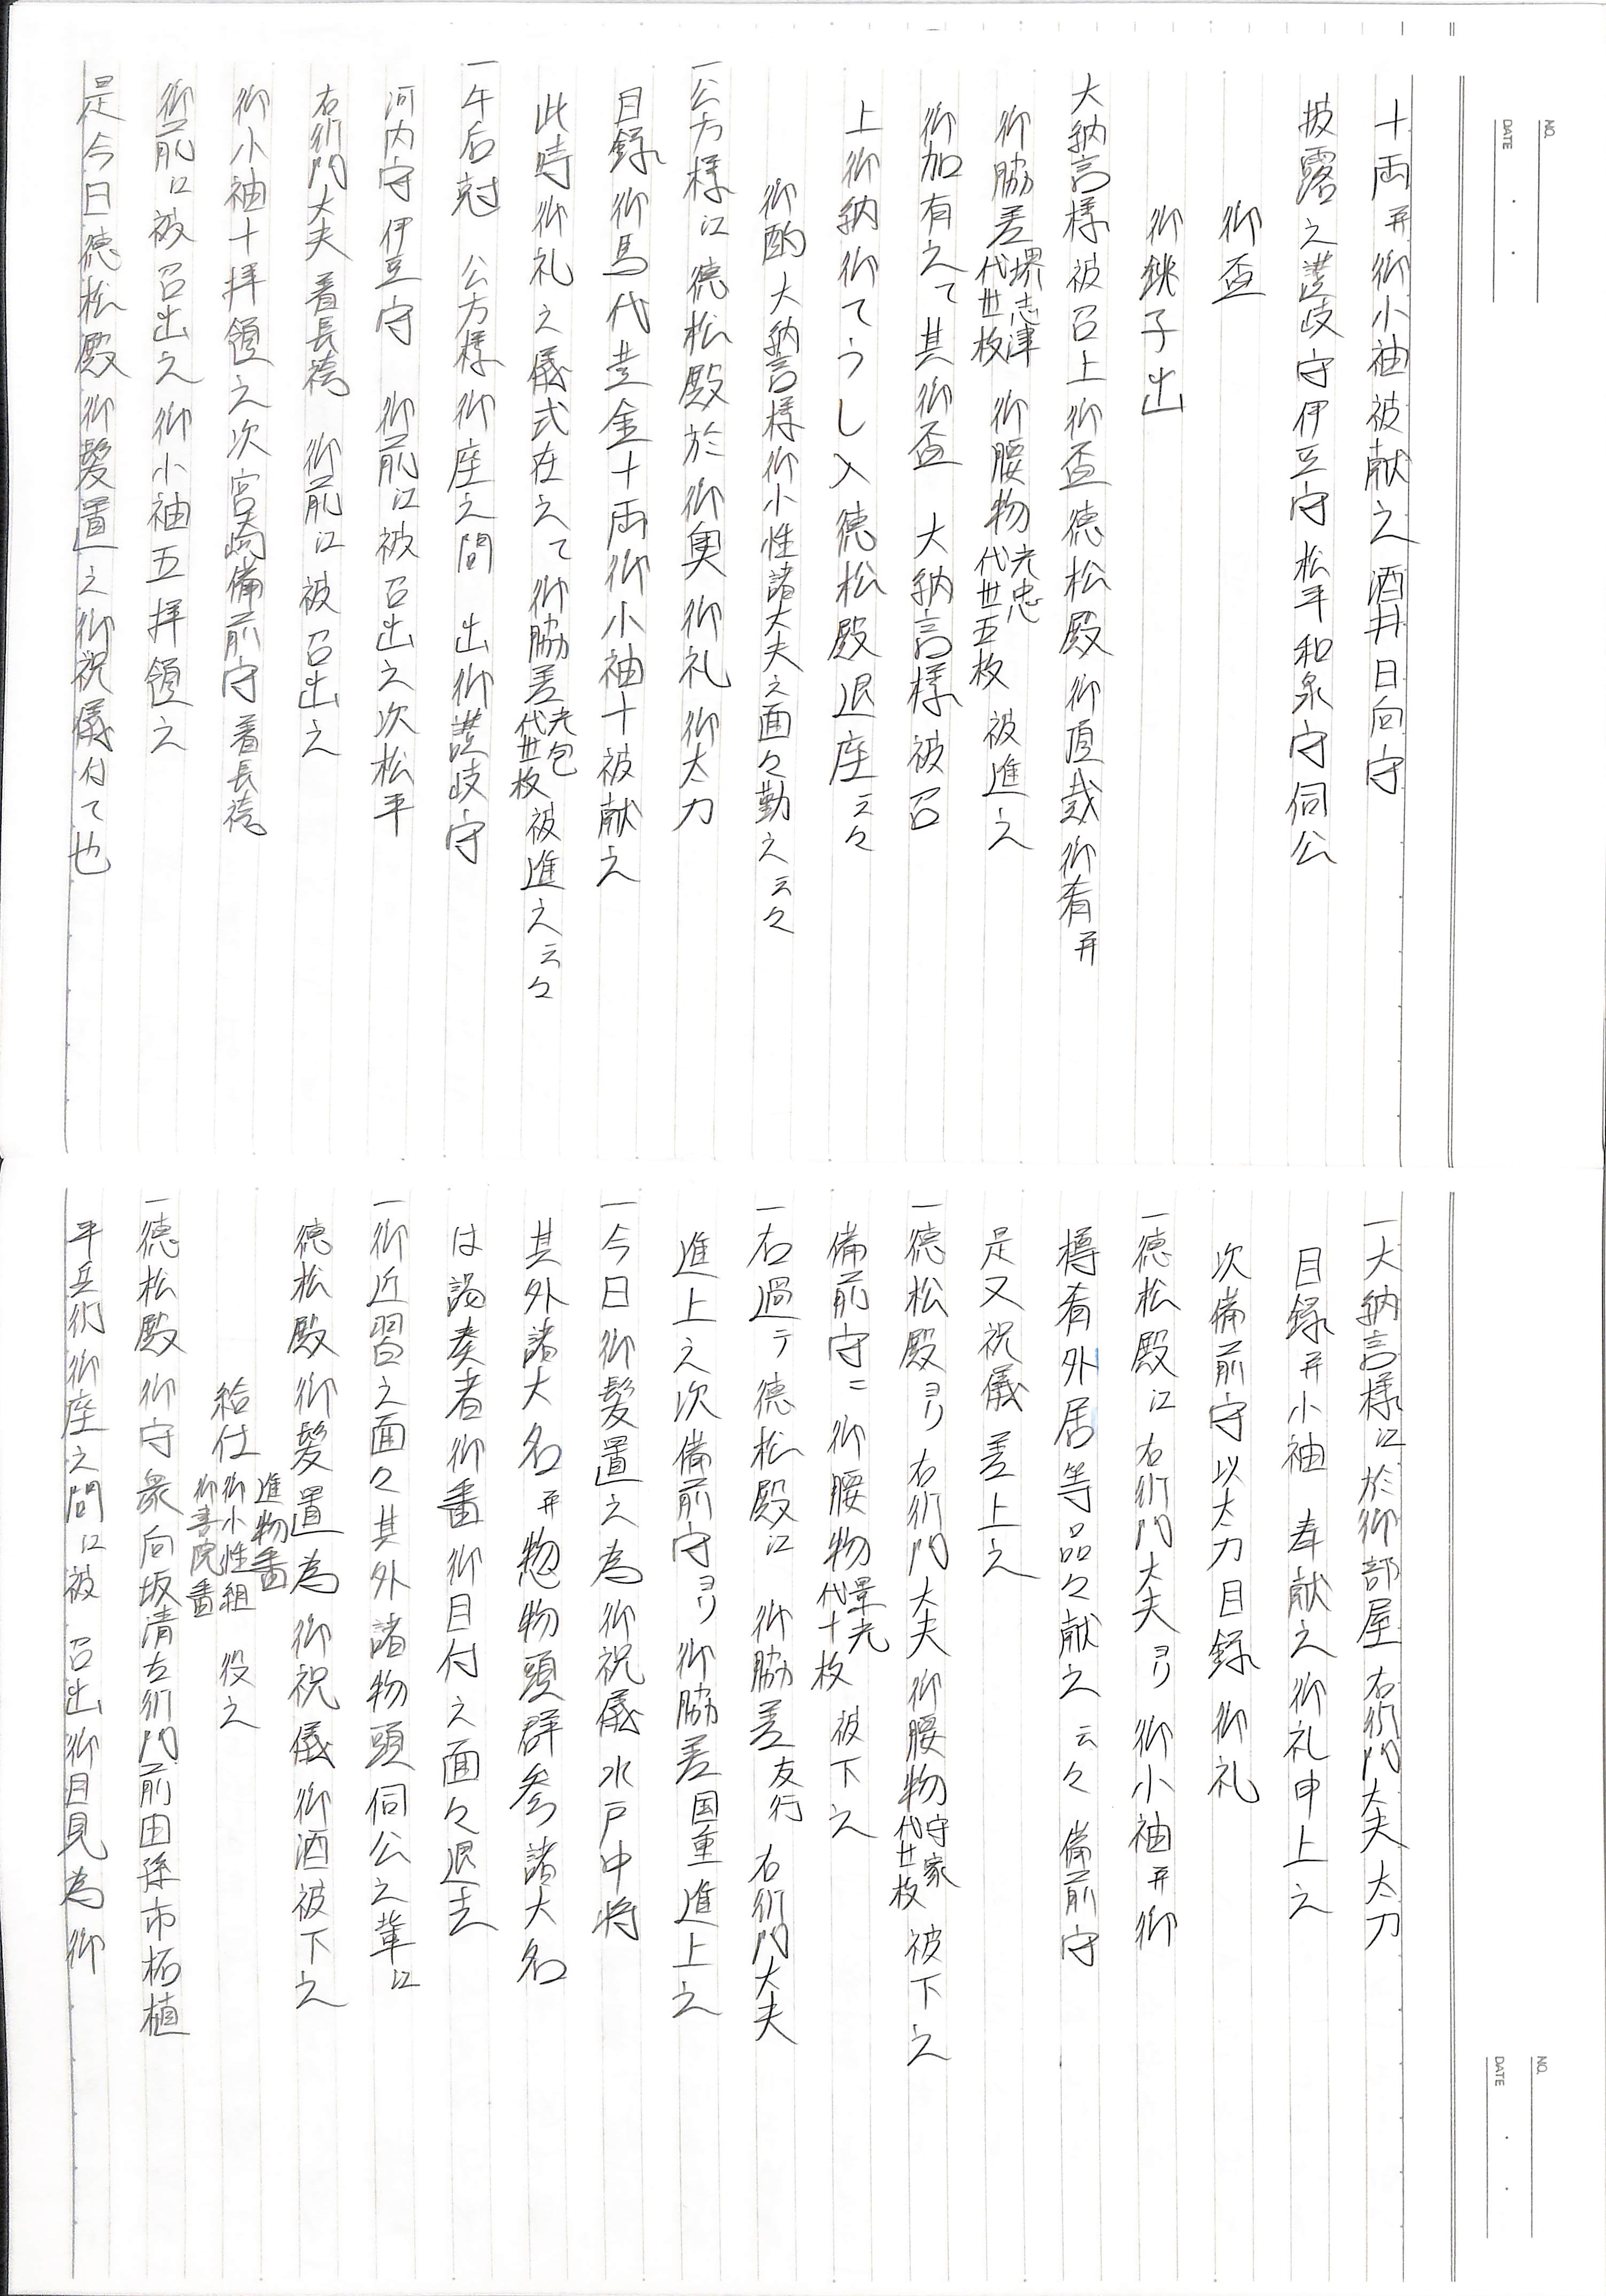 NO.
DATE
十両并御小袖被献之酒井日向守
披露之讃岐守伊豆守松平和泉守伺公
御盃
御銚子出
大納言様被召上御盃徳松殿御頂戴御肴并
御脇差堺志津代廿枚 御腰物光忠代廿五枚 被進之
御加有之て其御盃 大納言様被召
上御納御てうし入徳松殿退座云々
御酌大納言様御小性諸大夫之面々勤之云々
一公方様江徳松殿於御奥御礼御太刀
目録御馬代黄金十両御小袖十被献之
此時御礼之儀式在之て御脇差光包代廿枚被進之云々
一午后刻 公方様御座之間 出御讃岐守
河内守伊豆守 御前江被召出之次松平
右衛門大夫着長袴 御前江被召出之
御小袖十拝領之次宮崎備前守着長袴
御前江被召出之御小袖五拝領之
是今日徳松殿御髪置之御祝儀付て也
NO.
DATE
一大納言様江於御部屋右衛門大夫太刀
目録并小袖 奉献之御礼申上之
次備前守以太刀目録御礼
一徳松殿江右衛門大夫ヨリ御小袖并御
樽肴外居等品々献之云々 備前守
是又祝儀差上之
一徳松殿ヨリ右衛門大夫御腰物守家代廿枚 被下之
備前守ニ御腰物景光代十枚 被下之
一右過テ徳松殿江 御脇差友行 右衛門大夫
進上之次備前守ヨリ御脇差国重進上之
一今日御髪置之為御祝儀水戸中将
其外諸大名并惣物頭群参諸大名
は謁奏者御番御目付之面々退去
一御近習之面々其外諸物頭伺公之輩江
徳松殿御髪置為御祝儀御酒被下之
給仕 進物番 御小性組 御書院番 役之
一徳松殿御守衆向坂清左衛門前田孫市柘植
平兵衛御座之間江被 召出御目見為御